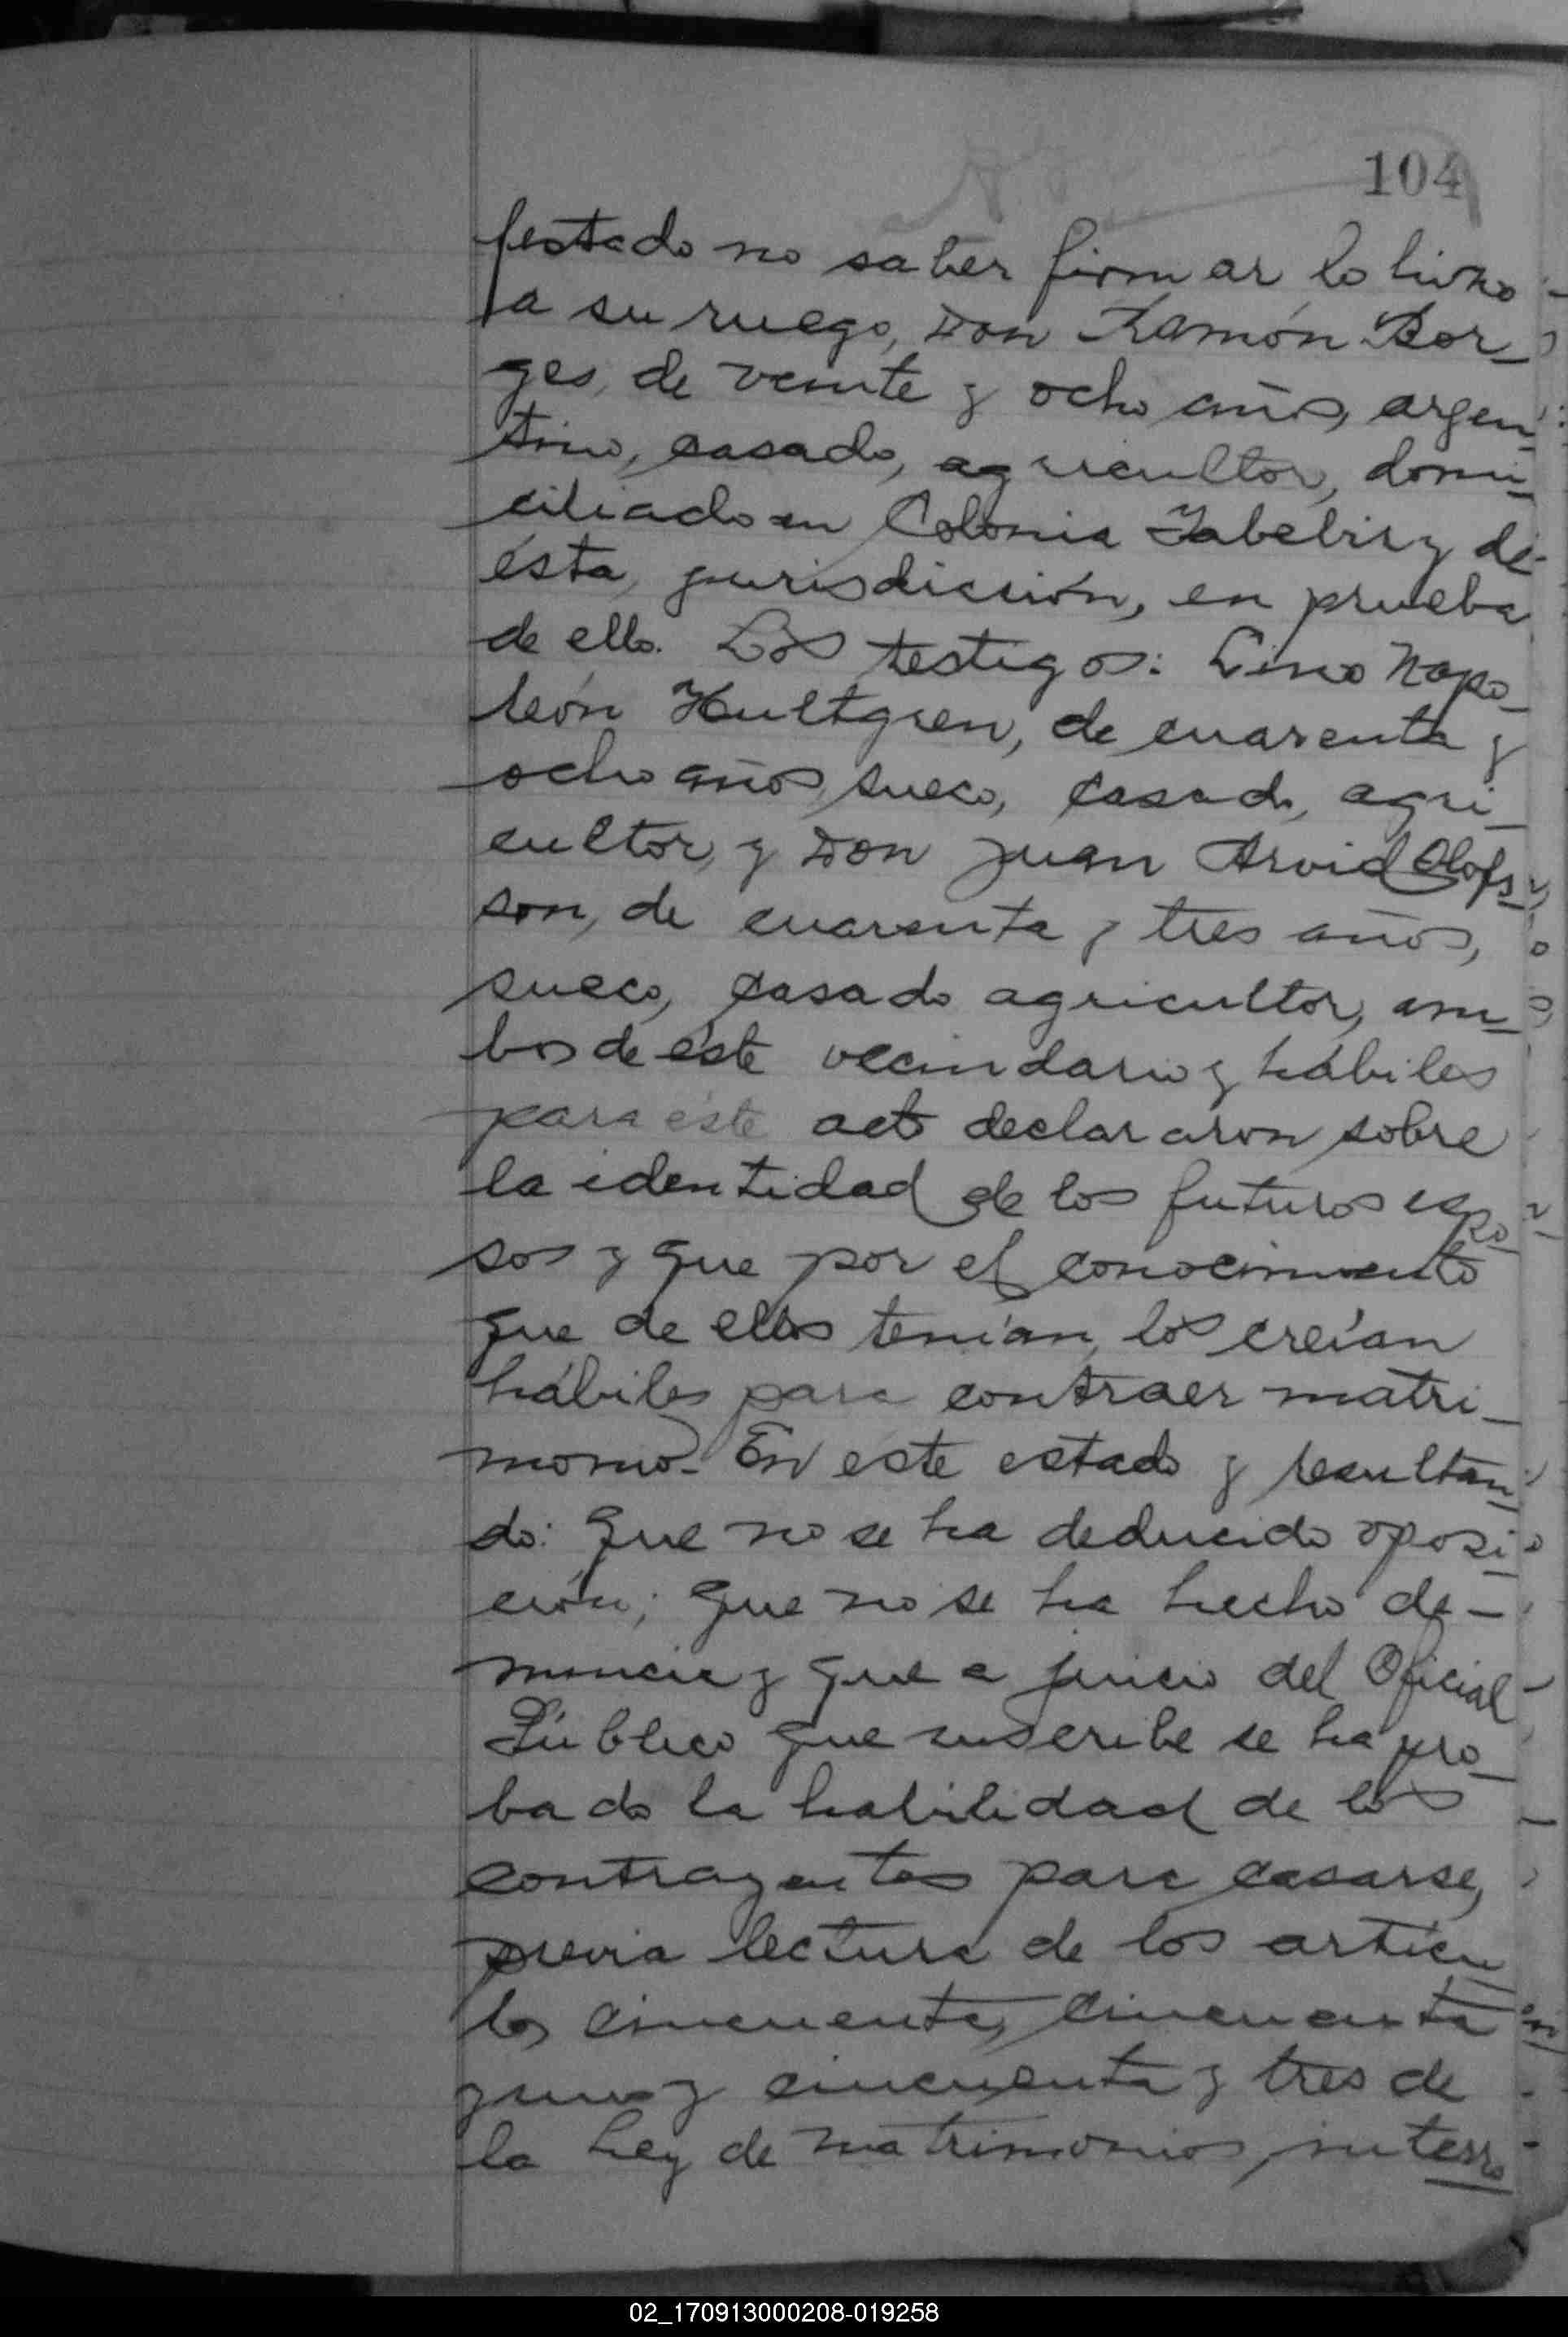 104
festado no saber firmar lo hizo
a su ruego, Don Ramón Bor_
ges, de veinte y ocho años, argen_
tino, casado, agricultor, domi_
ciliado en Colonia Yabebiry de
ésta, jurisdicción, en prueba
de ello. Los testigos: Lino Napo_
león Hultgren, de cuarenta y
ocho años, sueco, casado, agri_
cultor, y Don Juan Arvid Olofs_
son, de cuarenta y tres años,
sueco, casado agricultor, am_
bos de éste vecindario y hábiles
para éste acto declararon sobre
la identidad de los futuros espo_
sos y que por el conocimiento
que de ellos tenían, los creían
hábiles para contraer matri_
monio. En éste estado y resultan_
do: que no se ha deducido oposi_
ción; que no se ha hecho de_
nuncia y que a juicio del Oficial
Público que suscribe se ha pro_
bado la habilidad de los
contrayentes para casarse,
previa lectura de los artícu_
los cincuenta, cincuenta
y uno y cincuenta y tres de
la Ley de matrimonios, interro_
02_170913000208-019258